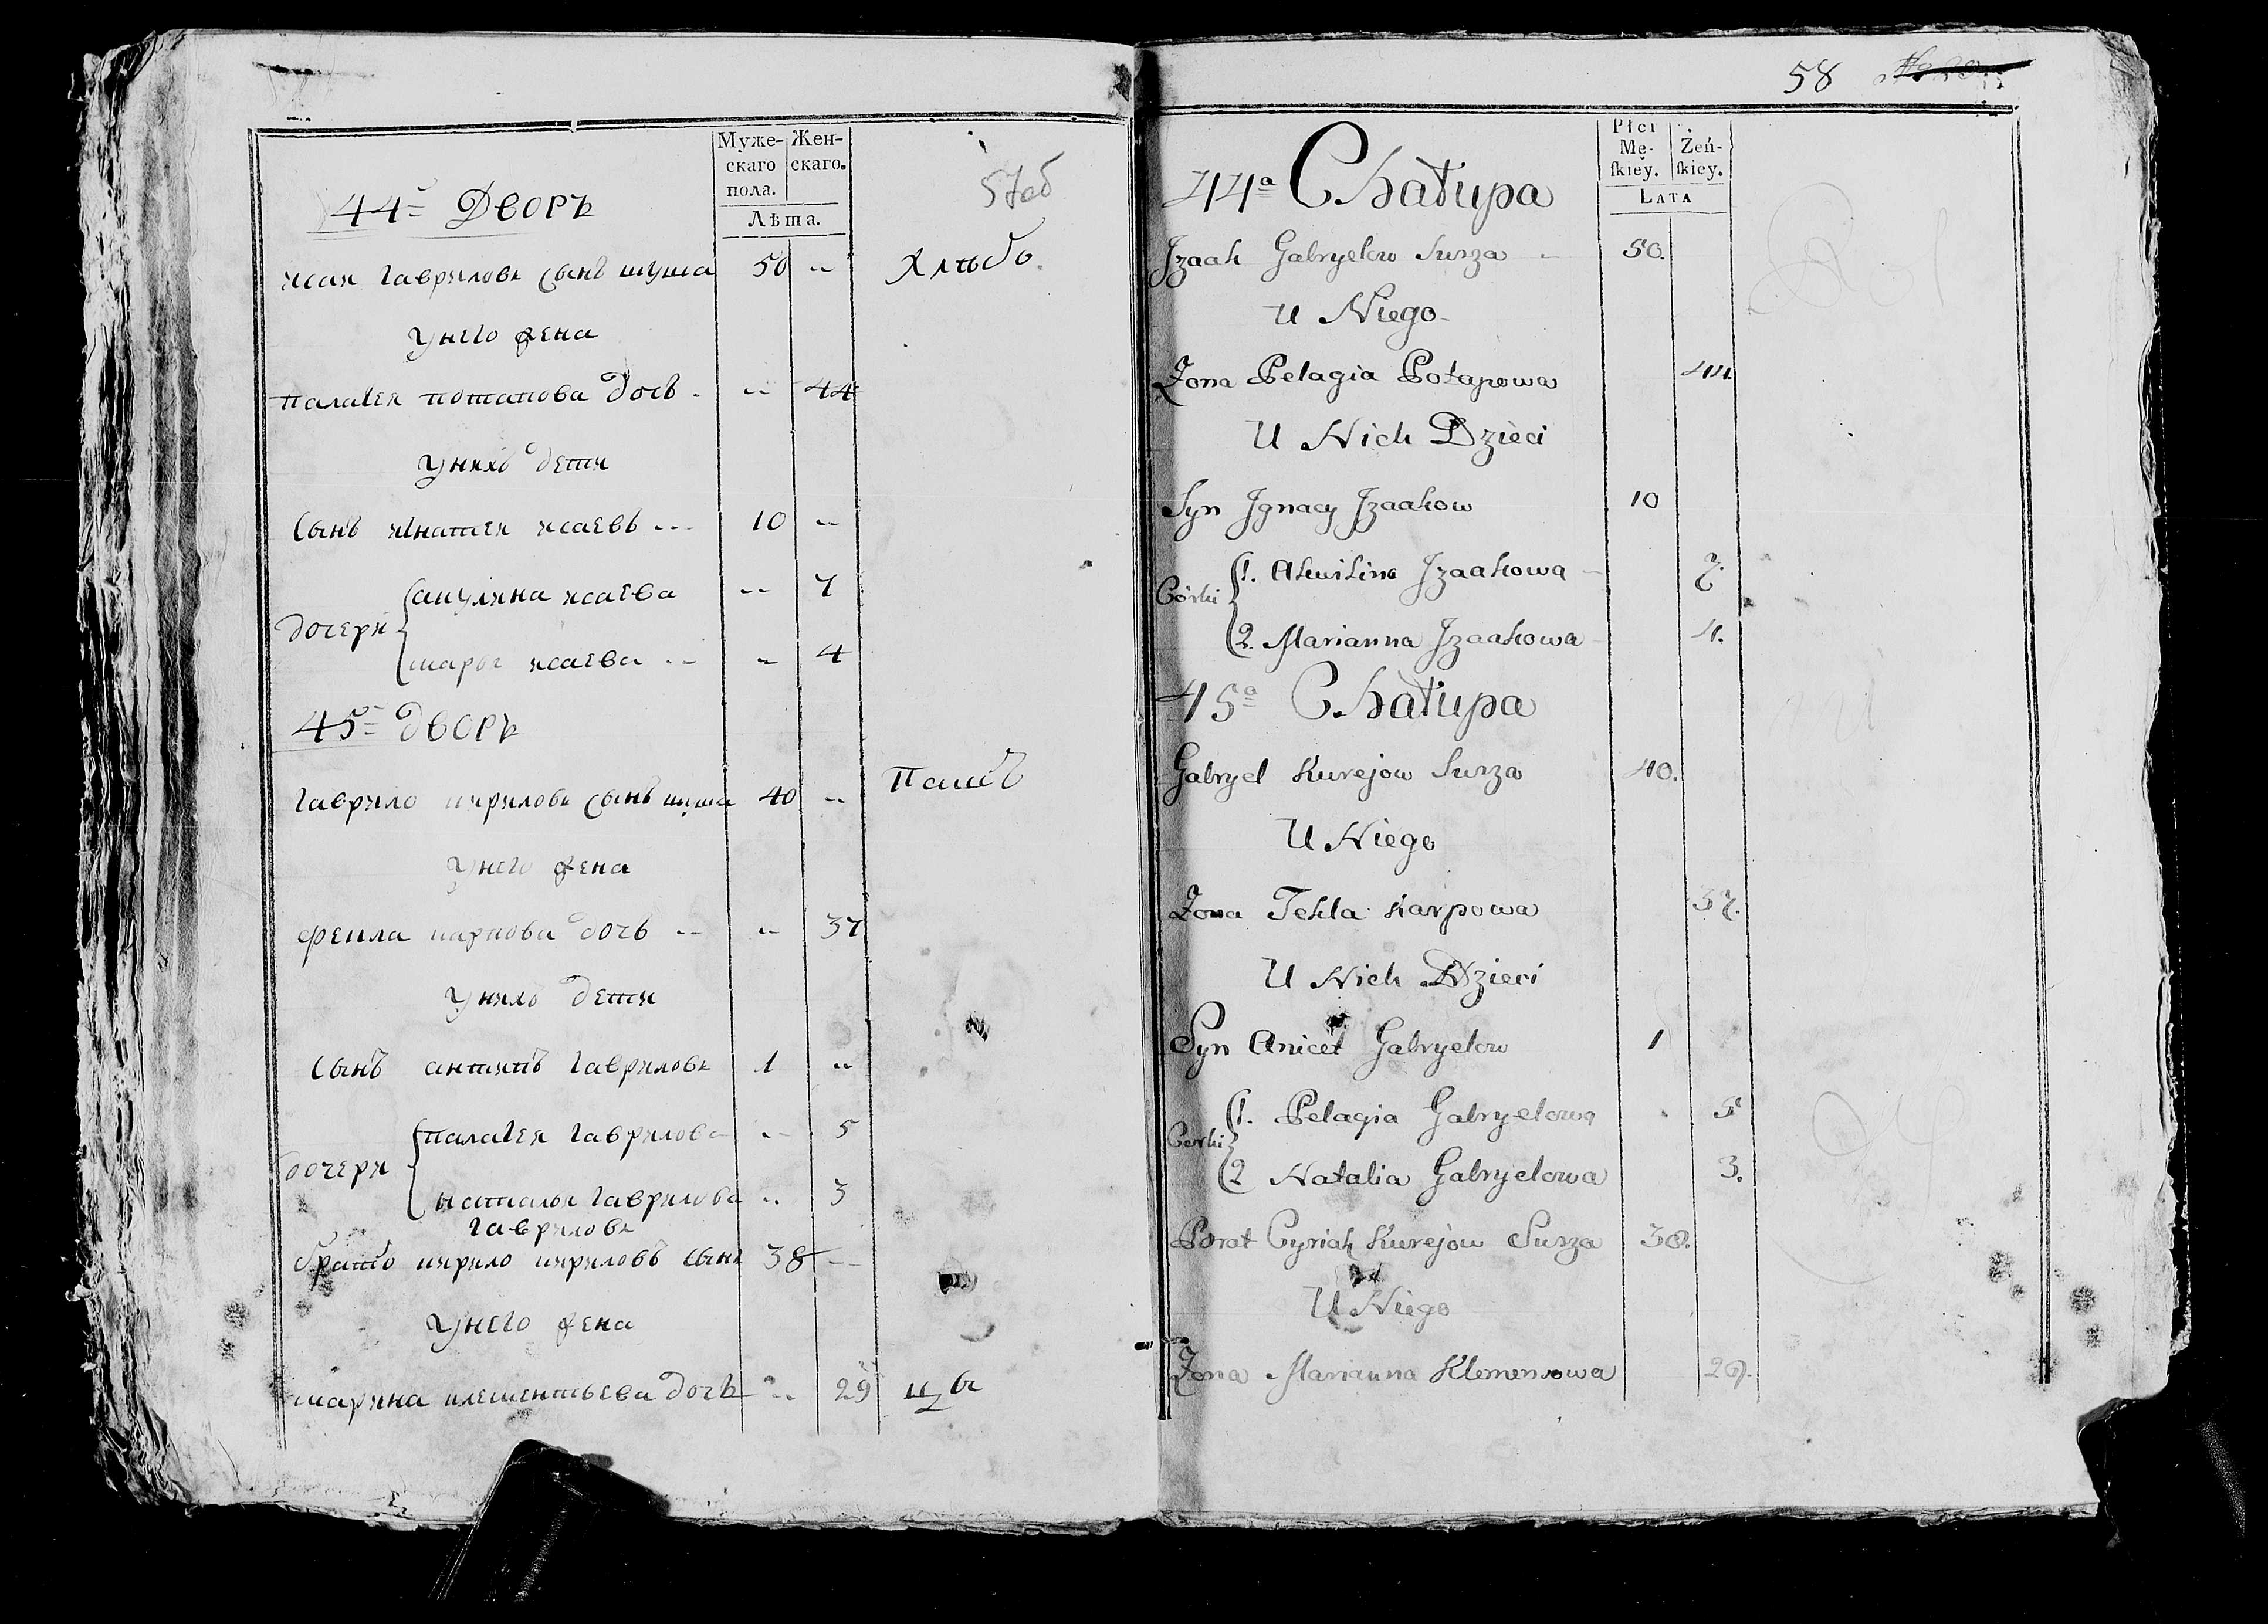 Муже-
скаго
пола.
Жен-
скаго.
Лѣта.
44й Дворъ
исай гавриловъ сынъ шуша 50 --
Хлѣбъ.
у него жена
палагея потапова дочь - -- 44
у нихъ дети
сынъ игнатей исаевъ --- 10 --
дочери
акулина исаева -- 7
марья исаева -- -- 4
45й дворъ
гаврило кириловъ сынъ шуша 40 --
у него жена
фекла карпова дочь -- -- 37
у нихъ дети
сынъ антипъ гавриловъ 1 --
дочери
палагея гаврилова -- 5
наталья гаврилова -- 3
гавриловъ
братъ кирило кириловъ сынъ 38 --
у него жена
марина клементьева дочь -- 29
58
Płci
Mę-
ſkiey.
Żeń-
ſkiey.
LATA
44a Chałupa
Jzaak Gabryelow Surza - 50.
U Niego
Żona Pelagia Potapowa 44
U Nich Dzieci
Syn Jgnacy Jzaakow 10
Córki
1. Akwilina Jzaakowa 7.
2. Marianna Jzaakowa 4.
45a Chałupa
Gabryel Kurejow Surza 40.
U Niego
Żona Tekla Karpowa 37.
U Nich Dzieci
Syn Anicet Gabryelow 1
Corki
1. Pelagia Gabryelowa 5
2 Natalia Gabryelowa 3.
Brat Cyriak Kurejow Surza 38.
U Niego
Żona Marianna Klemensowa 29.